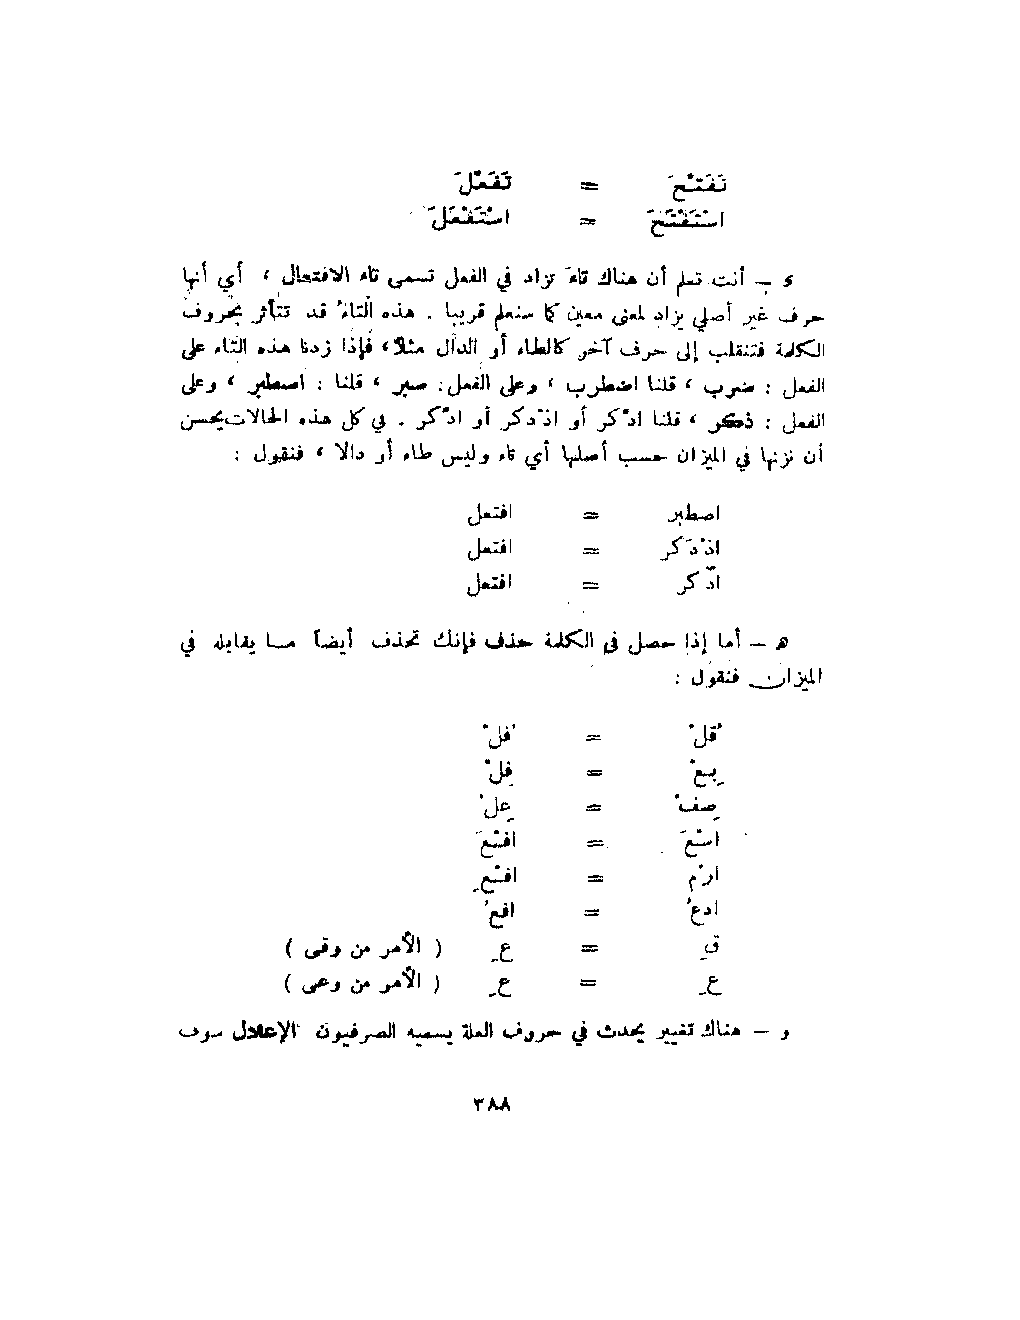 تَفَتْحَ = تَفَعْلَ
اسْتَفْتَحَ = اسْتَفْعَلَ
د – أنت تعلم أن هناك تاءً تزاد في الفعل تسمى تاء الافتعال ، أي أنها
حرف غير أصلي يزاد لمعنى معين كما سنعلم قريبا . هذه التاءُ قد تتأثر بحروف
الكلمة فتنقلب إلى حرف آخر كالطاء أو الدال مثلاً، فإذا زدنا هذه التاء على
الفعل : ضرب ، قلنا اضطرب ، وعلى الفعل: صبر ، قلنا : اصطبر ، وعلى
الفعل : ذكر ، قلنا ادّكر أو اذْدكر أو اذّكر . في كل هذه الحالات يحسن
أن نزنها في الميزان حسب أصلها أي تاء وليس طاء أو دالا ، فنقول :
اصطبر = افتعل
اذْدَكر = افتعل
اذّكر = افتعل
هـ – أما إذا حصل في الكلمة حذف فإنك تحذف أيضاً مـا يقابله في
الميزان فنقول :
قُلْ = فُلْ
بِعْ = فِلْ
صِفْ = عِلْ
اسْعَ = افْعَ
ارْمِ = افْعِ
ادعُ = افعُ
قِ = عِ ( الأمر من وقى )
عِ = عِ ( الأمر من وعى )
و – هناك تغيير يحدث في حروف العلة يسميه الصرفيون الإعلال سوف
٣٨٨